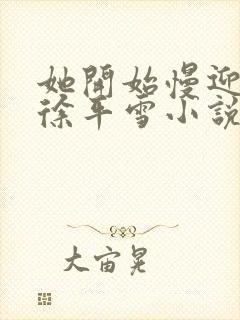 她開始慢迎
徐平雪小說
大宙晃